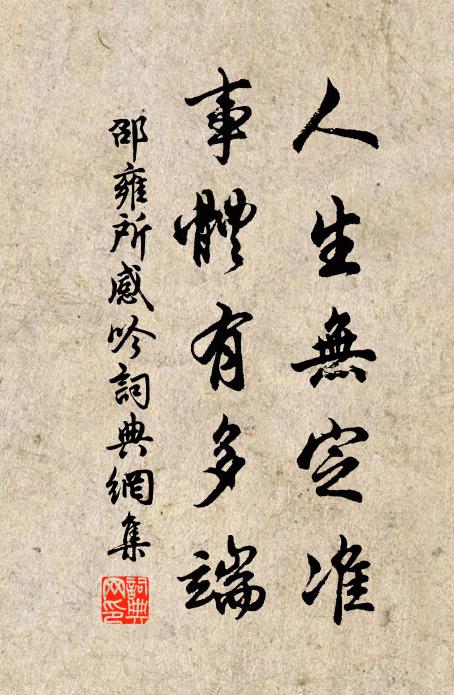 人生無定准
事體有多端
邵雍所感吟詞典網集
詞典
网印